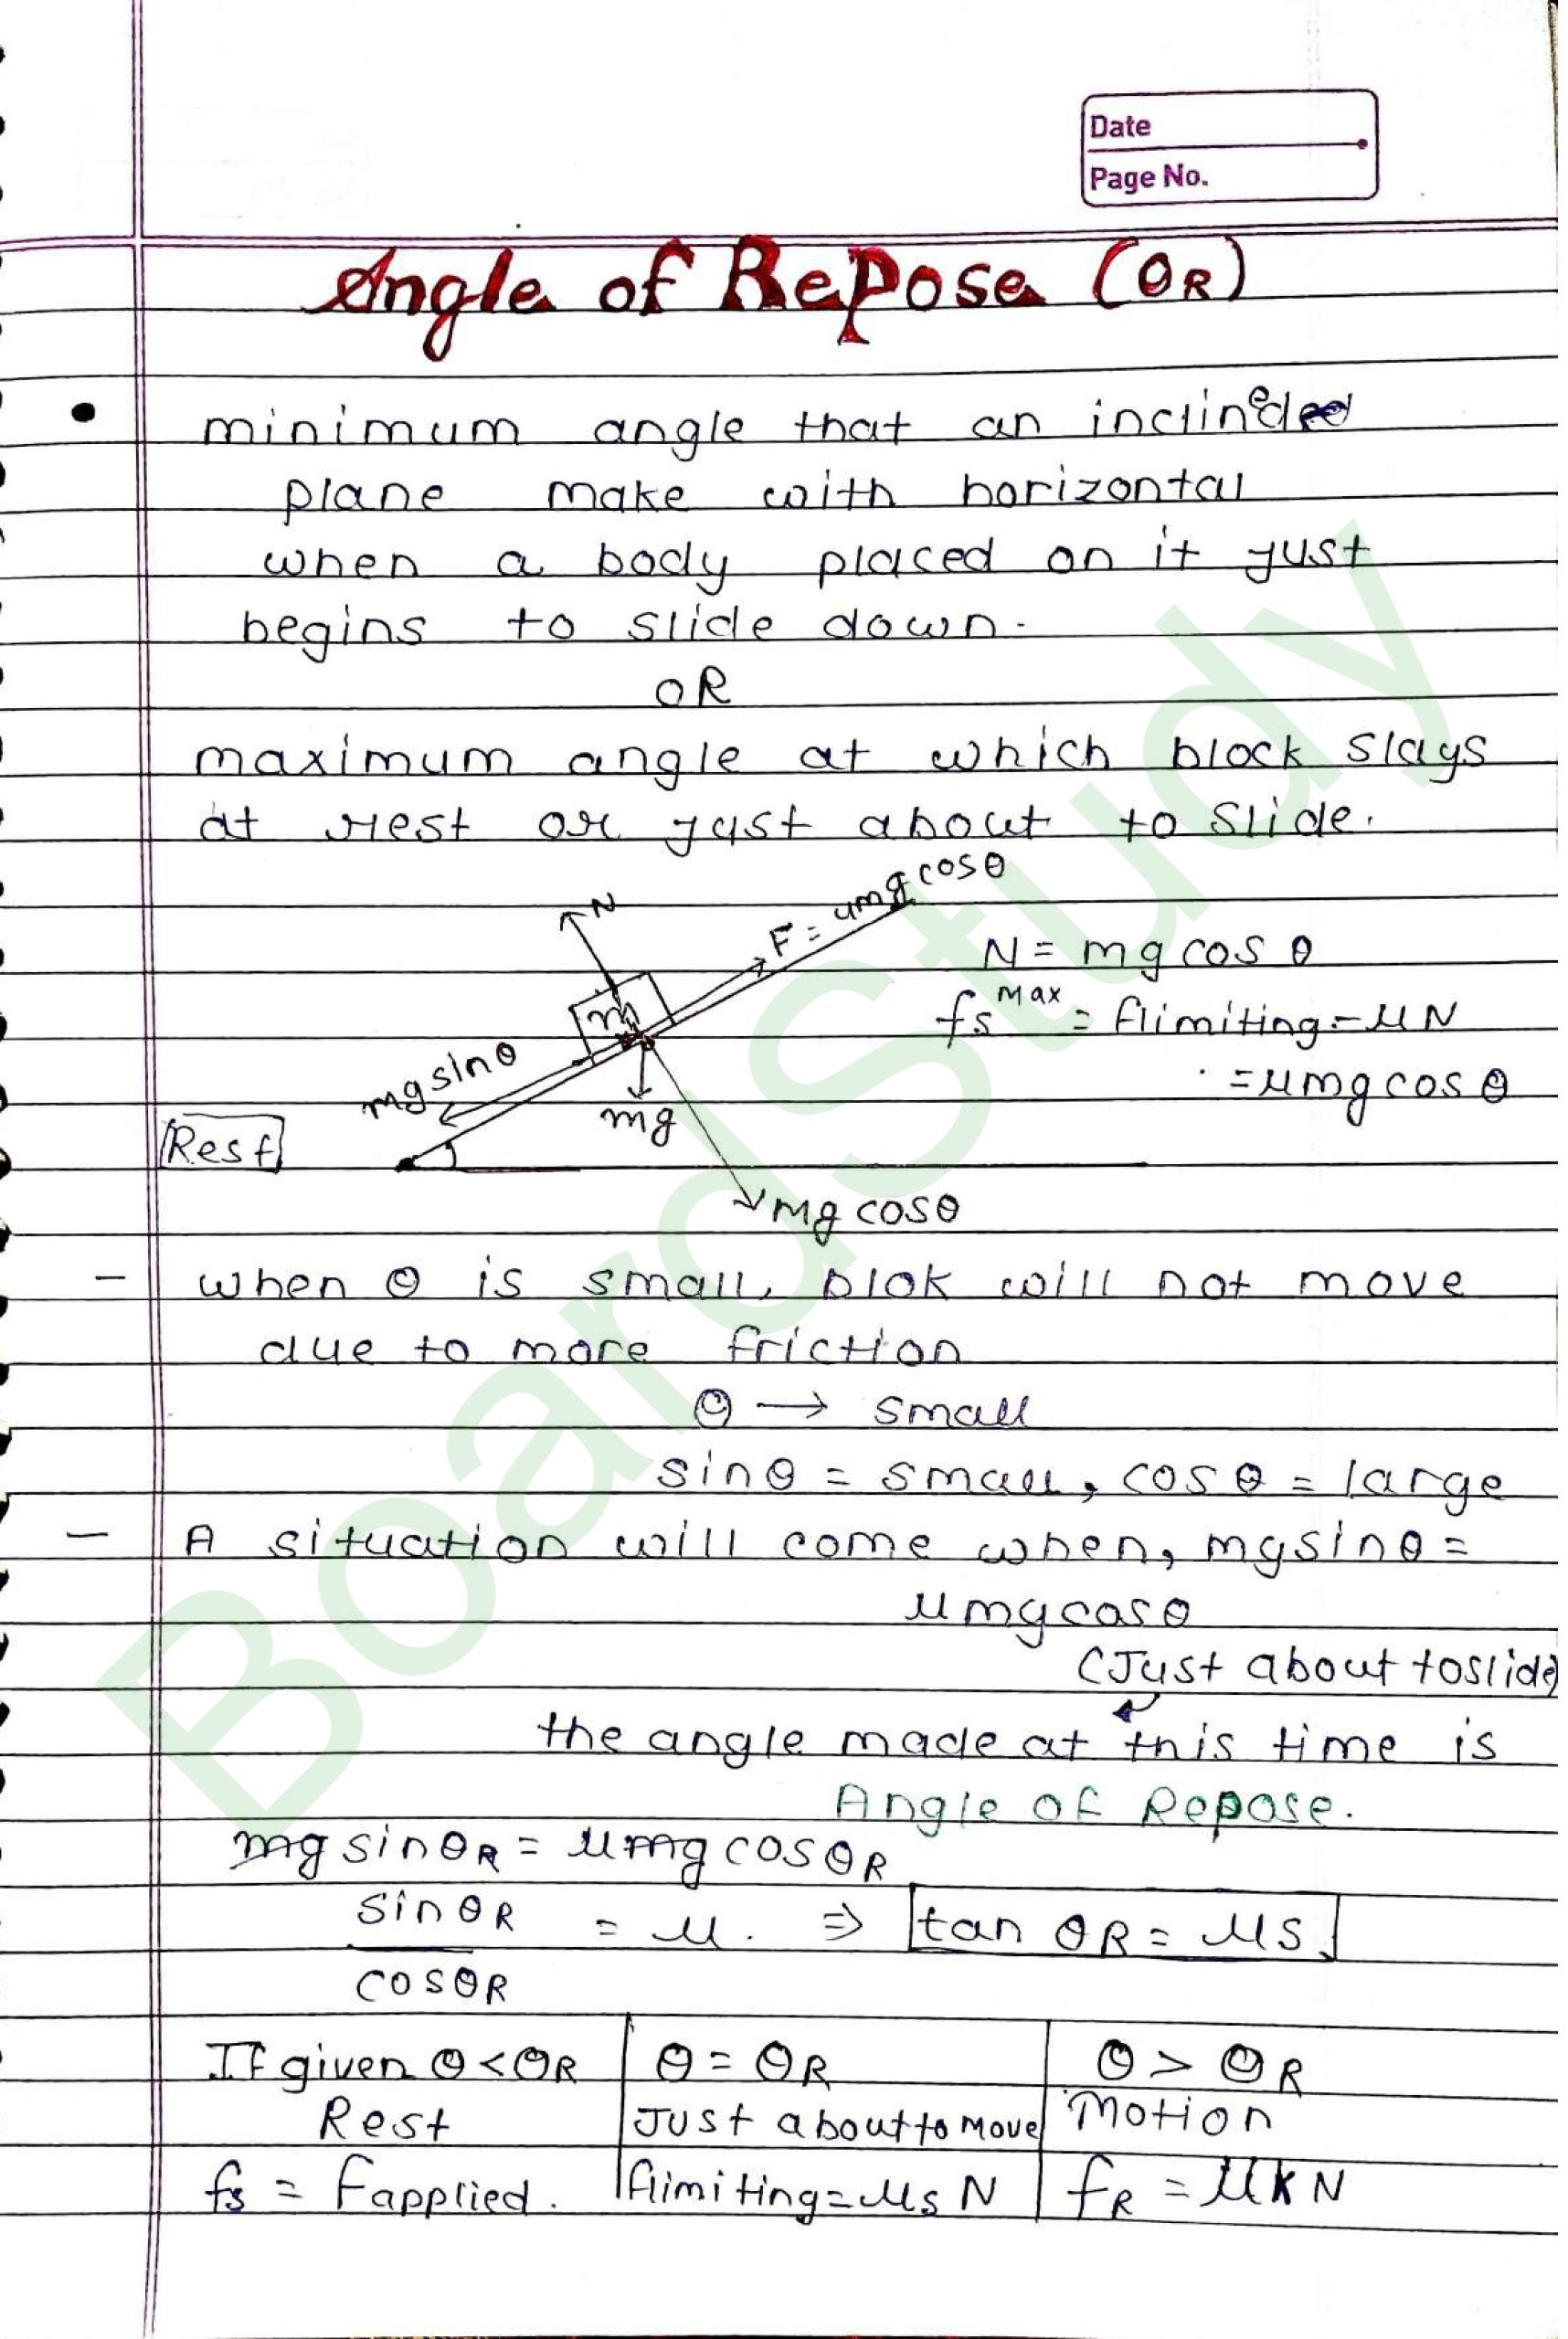 Date
Page No.
Angle of Repose (θR)
• minimum angle that an inclined
plane make with horizontal
when a body placed on it just
begins to slide down.
OR
maximum angle at which block slays
at rest or just about to slide.
N
F = μmg cosθ
m
mg sinθ
mg
mg cosθ
Rest
N = mg cos θ
fs max = flimiting = μN
= μmg cos θ
– when θ is small, blok will not move
due to more friction
θ → small
sinθ = small, cosθ = large
– A situation will come when, mgsinθ =
μmgcosθ
(Just about to slide)
the angle made at this time is
Angle of Repose.
mg sinθR = μmg cosθR
sinθR / cosθR = μ. ⇒ tan θR = μs
If given θ < θR | θ = θR | θ > θR
Rest | Just about to move | Motion
fs = Fapplied. | flimiting = μs N | fR = μk N
BoardStudy